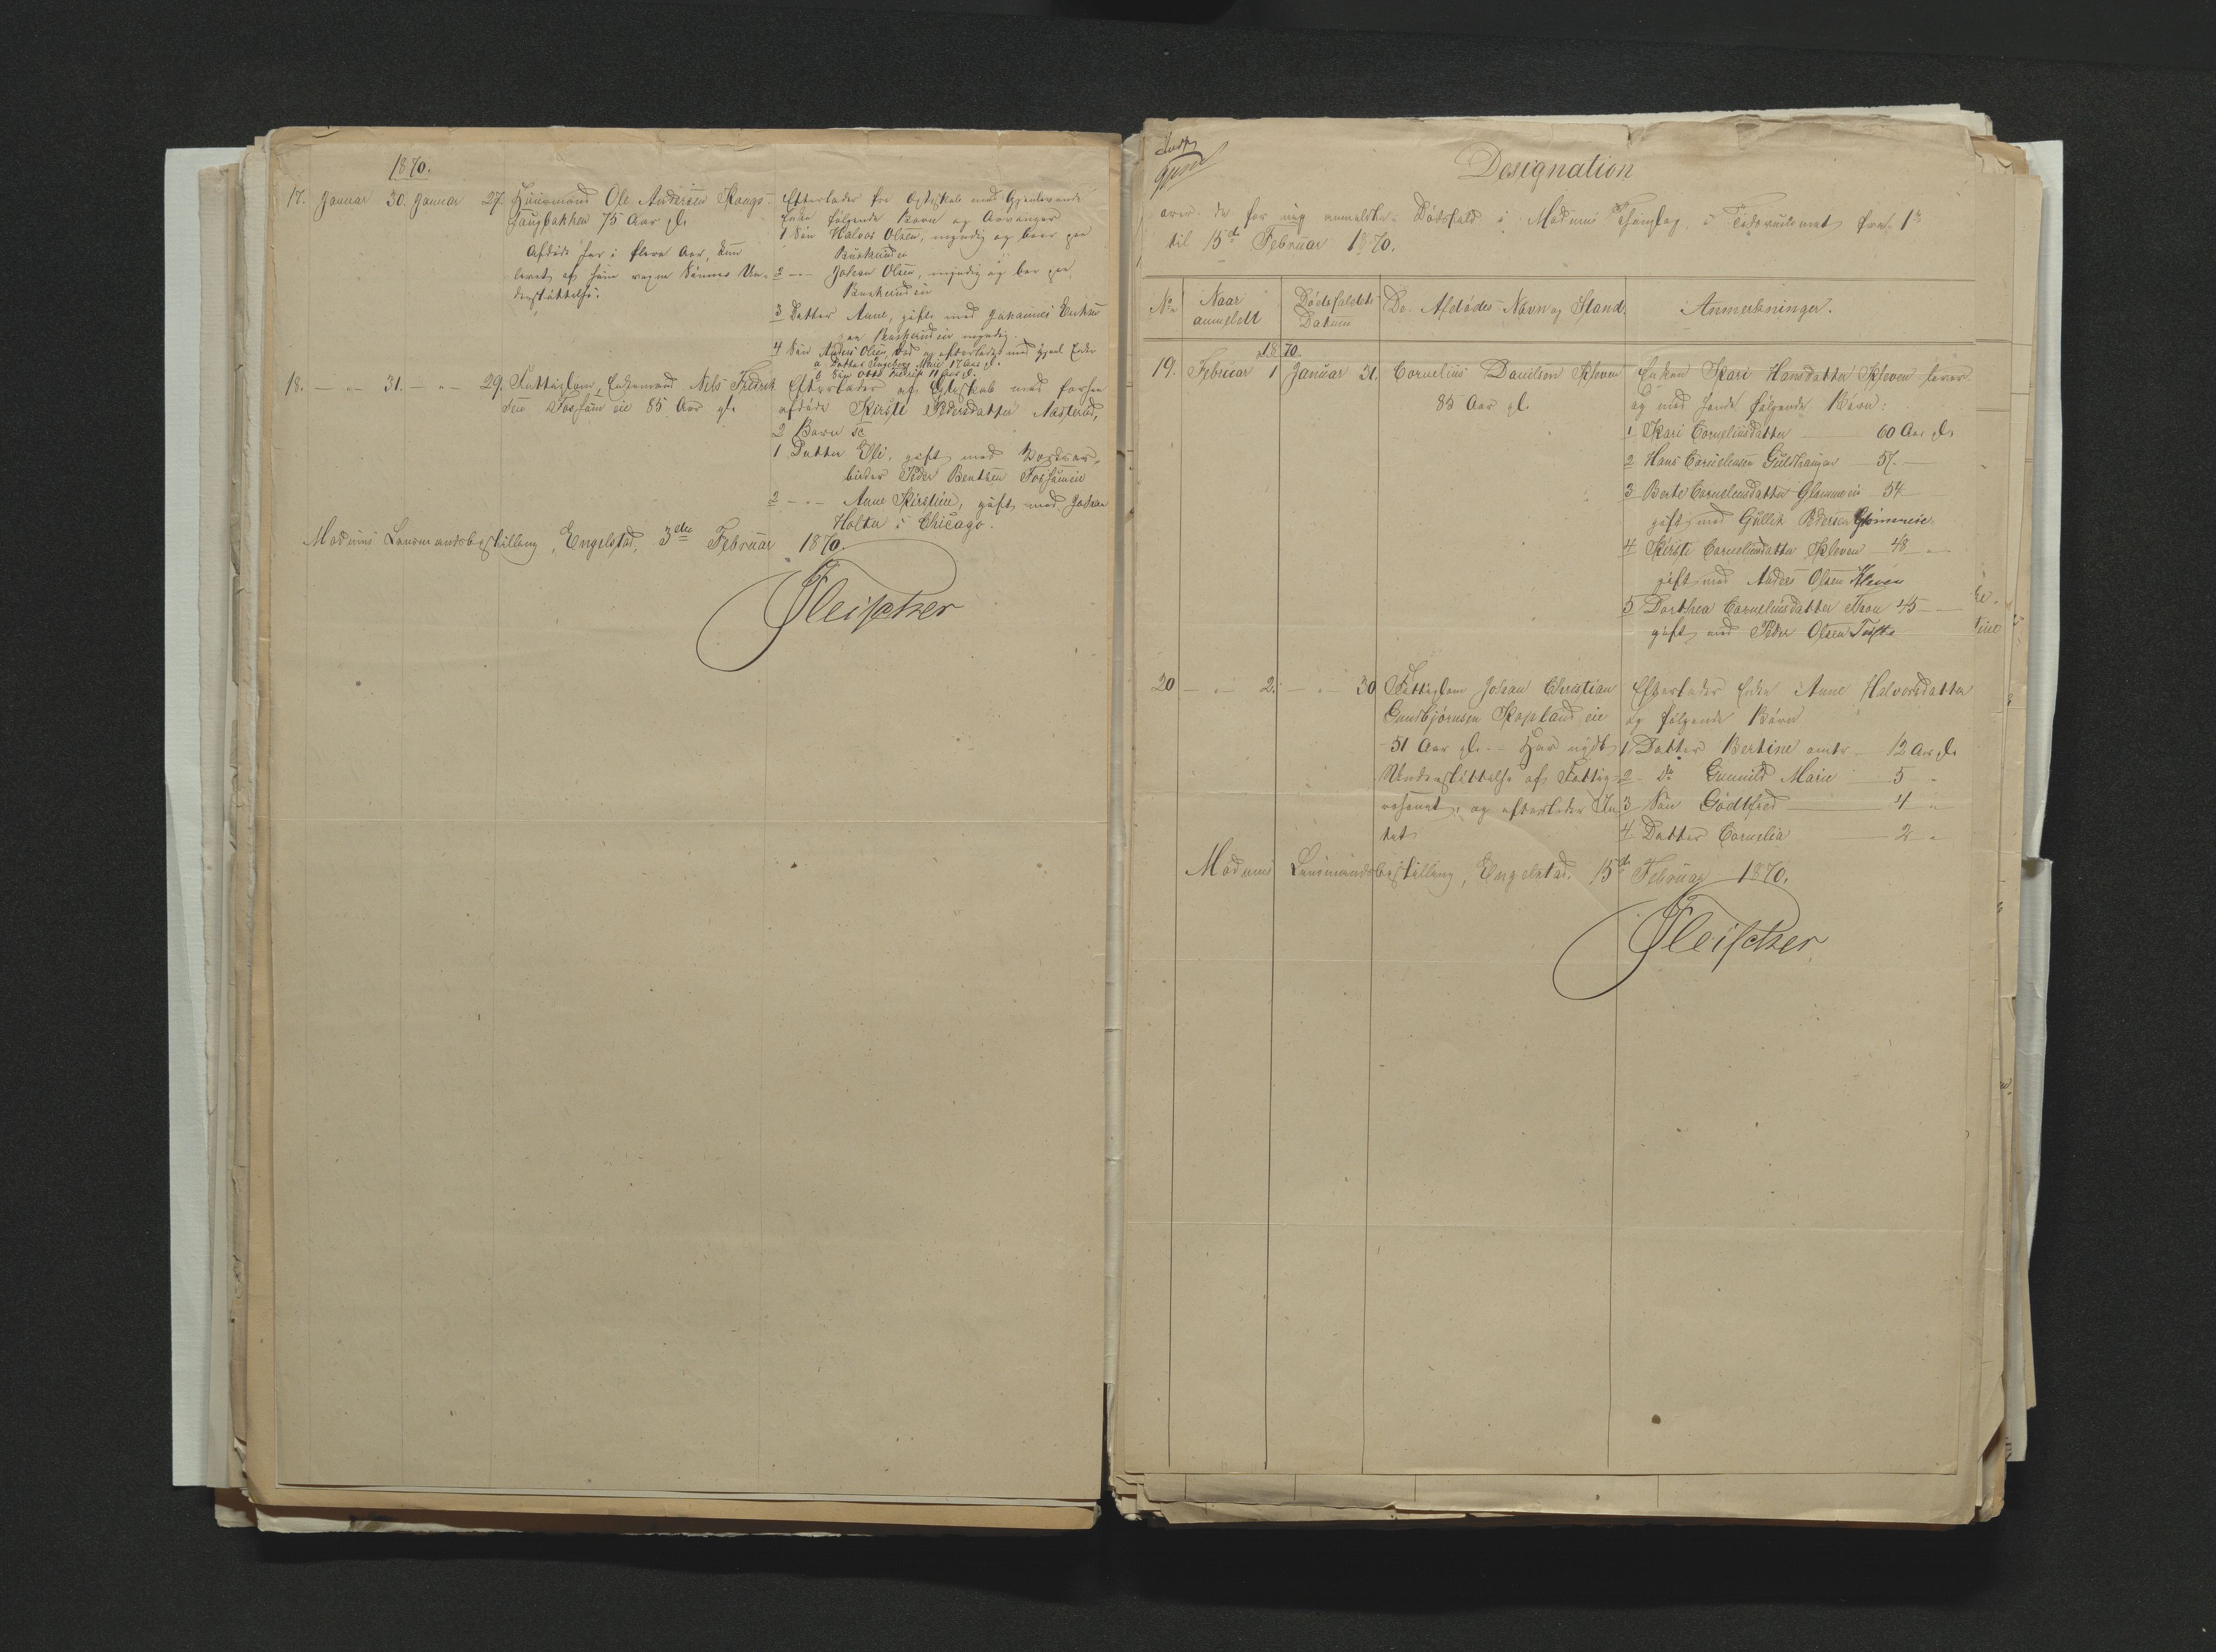 1870.
17. Januar 30. Januar 27. Huusmand Ole Andersen Skaugs-
haugbakken 75 Aar gl.
Afdøde har i flere Aar, kun
levet af sine voxne Sønners Un-
derstøttelse.
Efterlader fra Egteskab med Gjenlevende
Enke følgende Børn og Arvinger
1 Søn Halvor Olsen, myndig og boer paa
Buskerudeie
2 - " - Johan Olsen, myndig og bor paa
Buskerudeie
3 Datter Anne, gift med Johannes
paa Buskerudeie myndig
4 Søn Anders Olsen død og efterladt med Enke
a Datter Ingeborg Marie 17 Aar gl.
b Søn Otto Fredrik 11 Aar gl.
18. - " - 31. - " - 29. Fattiglem, Enkemand Nels Fredrik-
sen Fossum eie 85 Aar gl.
Efterlader af Egteskab med forhen
afdøde Kirsti Pedersdatter
2 Børn sc
1 Datter Elli, gift med
Peder Bentsen Fossumeie
2 - " - Anne Kirstine, gift med Johan
Holter i Chicago.
Modums Lensmandsbestilling, Engelstad, 3die Februar 1870.
Fleischer
Designation
over de for mig anmeldte Dødsfald i Modums Thinglag i Tidsrummet fra 1ste
til 15de Februar 1870.
No Naar anmeldt Dødsfaldets Datum De Afdødes Navn og Stand. Anmerkninger.
1870.
19. Februar 1 Januar 31. Cornelius Danielsen Kleven
85 Aar gl.
Enken Kari Hansdatter Kleven lever
og med hende følgende Børn:
1 Kari Corneliusdatter 60 Aar gl.
2 Hans Corneliusen 57. -
3 Berte Corneliusdatter Glammeeie 54
gift med Gullik Pedersen
4 Kirsti Corneliusdatter Kleven 48 - " -
gift med Anders Olsen Kleven
5 Dorthea Corneliusdatter 45 -
gift med Peder Olsen
20 - " - 2. - " - 30 Fattiglem Johan Christian
Gundbjørnsen Kopland eie
51 Aar gl. - Har nydt
Understøttelse af Fattig-
vesenet, og efterlader In-
tet
Efterlader Enke Anne Halvorsdatter
og følgende Børn
1 Datter Bertine omtr 12 Aar gl.
2 - do Gunnild Marie 5 "
3 Søn Godtfred 4 "
4 Datter Cornelia 2 "
Modums Lensmandsbestilling, Engelstad, 15de Februar 1870.
Fleischer